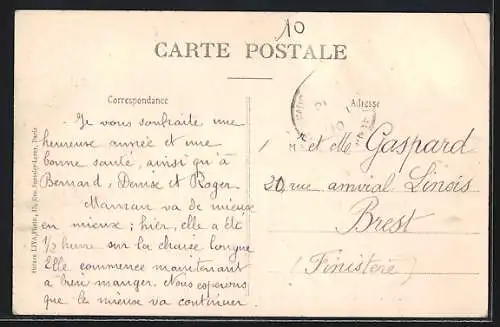 10
CARTE POSTALE
Correspondance
Adresse
Je vous souhaite une
heureuse année et une
bonne santé, ainsi qu'à
Bernard, Denise et Roger.
Maman va de mieux
en mieux ; hier, elle a été
1/2 heure sur la chaise longue
Elle commence maintenant
à bien manger. Nous espérons
que le mieux va continuer.
M et Me Gaspard
20, rue amiral Linois
Brest
(Finistère)